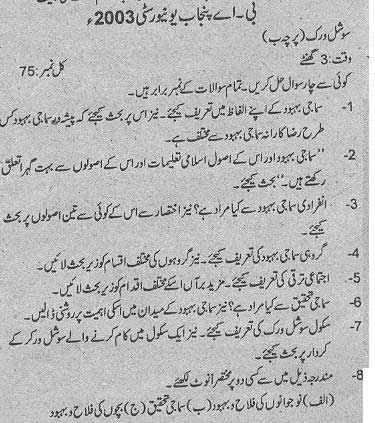 بی۔اے پنجاب یونیورسٹی 2003ء
سوشل ورک (پرچہ ب)
وقت: 3 گھنٹے
کل نمبر: 75
کوئی سے چار سوال حل کریں۔ تمام سوالات کے نمبر برابر ہیں۔
1- سماجی بہبود کے اپنے الفاظ میں تعریف کیجئے۔ نیز اس پر بحث کیجئے کہ پیشہ ورہ سماجی بہبود کس
طرح رضا کارانہ سماجی بہبود سے مختلف ہے۔
2- ”سماجی بہبود اور اس کے اصول اسلامی تعلیمات اور اس کے اصولوں سے بہت گہرا تعلق
رکھتے ہیں۔“ بحث کیجئے۔
3- انفرادی سماجی بہبود سے کیا مراد ہے؟ نیز اختصار سے اس کے کوئی سے تین اصولوں پر بحث
کیجئے۔
4- گروہی سماجی بہبود کی تعریف کیجئے۔ نیز گروہوں کی مختلف اقسام کو زیر بحث لائیں۔
5- اجتماعی ترقی کی تعریف کیجئے۔ مزید برآں اسکے مختلف اقدام کو زیر بحث لائیں۔
6- سماجی تحقیق سے کیا مراد ہے؟ نیز سماجی بہبود کے میدان میں اسکی اہمیت پر روشنی ڈالیں۔
7- سکول سوشل ورک کی تعریف کیجئے۔ نیز ایک سکول میں کام کرنے والے سوشل ورکر کے
کردار پر بحث کیجئے۔
8- مندرجہ ذیل میں سے کسی دو پر مختصراً نوٹ لکھئے۔
(الف) نوجوانوں کی فلاح و بہبود (ب) سماجی تحقیق (ج) بچوں کی فلاح و بہبود